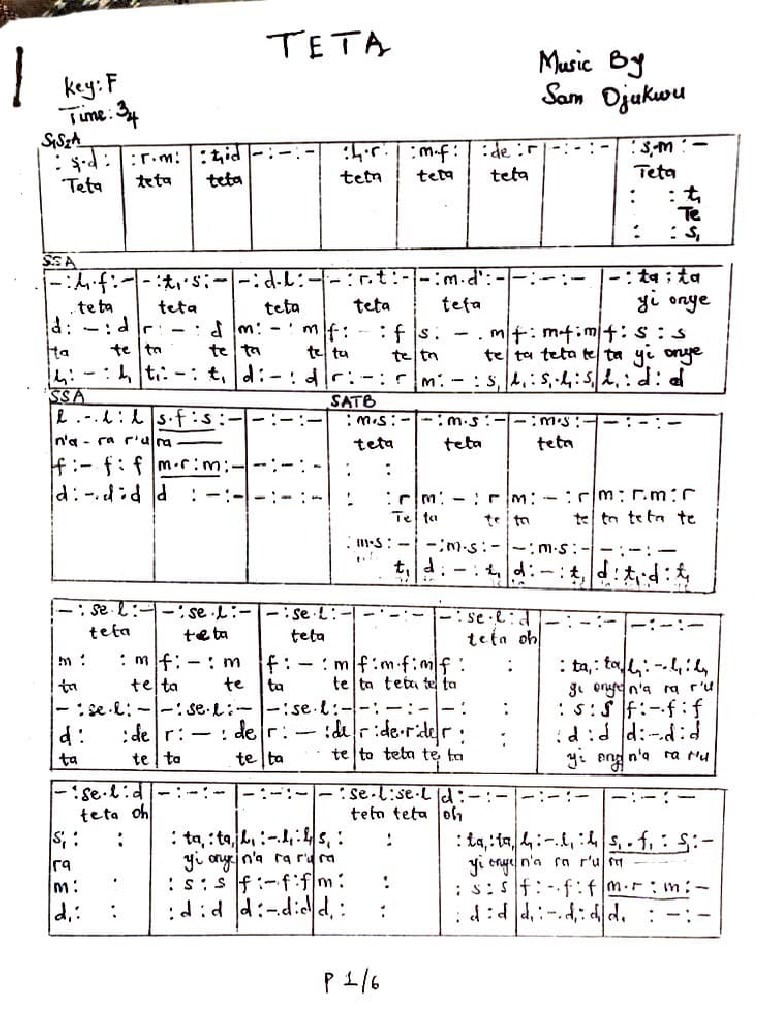 TETA
Music By
Key: F
Sam Ojukwu
Time: 3/4
S₁S₂A
: s₁.d : | : r.m : | : t₁.d | - : - : - | : l₁.r : | : m.f : | : de : r | - : - : - | : s₁.m : -
Teta teta teta teta teta teta Teta
: : t₁
Te
: : s₁
SSA
- : l₁.f : - | - : t₁.s : - | - : d.l : - | - : r.t : - | - : m.d' : - | - : - : - | - : ta : ta
teta teta teta teta teta yi onye
d : - : d | r : - : d | m : - : m | f : - : f | s : - . m | f : m.f : m | f : s : s
ta te ta te ta te ta te ta te ta teta te ta yi onye
l₁ : - : l₁ | t₁ : - : t₁ | d : - : d | r : - : r | m : - : s₁ | l₁ : s₁.l₁ : s₁ | l₁ : d : d
SSA SATB
l . - . l : l | s.f : s : - | - : - : - | : m.s : - | - : m.s : - | - : m.s : - | - : - : -
n'a - ra r'u ra teta teta teta
f : - f : f | m.r : m : - | - : - : - | : :
d : - . d : d | d : - : - | - : - : - | : : r | m : - : r | m : - : r | m : r.m : r
Te ta te ta te ta teta te
: m.s : - | - : m.s : - | - : m.s : - | - : - : -
t₁ | d : - : t₁ | d : - : t₁ | d : t₁.d : t₁
- : se.l : - | - : se.l : - | - : se.l : - | - : - : - | - : se.l : d | - : - : - | - : - : -
teta teta teta teta oh
m : : m | f : - : m | f : - : m | f : m.f : m | f : : | : ta₁ : ta₁ | l₁ : - . l₁ : l₁
ta te ta te ta te ta teta te ta yi onye n'a ra r'u
- : se.l : - | - : se.l : - | - : se.l : - | - : - : - | - : : | : s : s | f : - . f : f
d : : de | r : - : de | r : - : de | r : de.r : de | r : : | : d : d | d : - . d : d
ta te ta te ta te ta teta te ta yi ony n'a ra r'u
- : se.l : d | - : - : - | - : - : - | - : se.l : se.l | d : - : - | - : - : - | - : - : -
teta oh teta teta oh
s₁ : : | : ta₁ : ta₁ | l₁ : - . l₁ : l₁ | s₁ : : | : ta₁ : ta₁ | l₁ : - . l₁ : l₁ | s₁ . f₁ : s₁ : -
ra yi onye n'a ra r'u ra yi onye n'a ra r'u ra
m : : | : s : s | f : - . f : f | m : : | : s : s | f : - . f : f | m.r : m : -
d₁ : : | : d : d | d : - . d : d | d₁ : : | : d : d | d₁ : - . d₁ : d₁ | d₁ : - : -
P 1/6